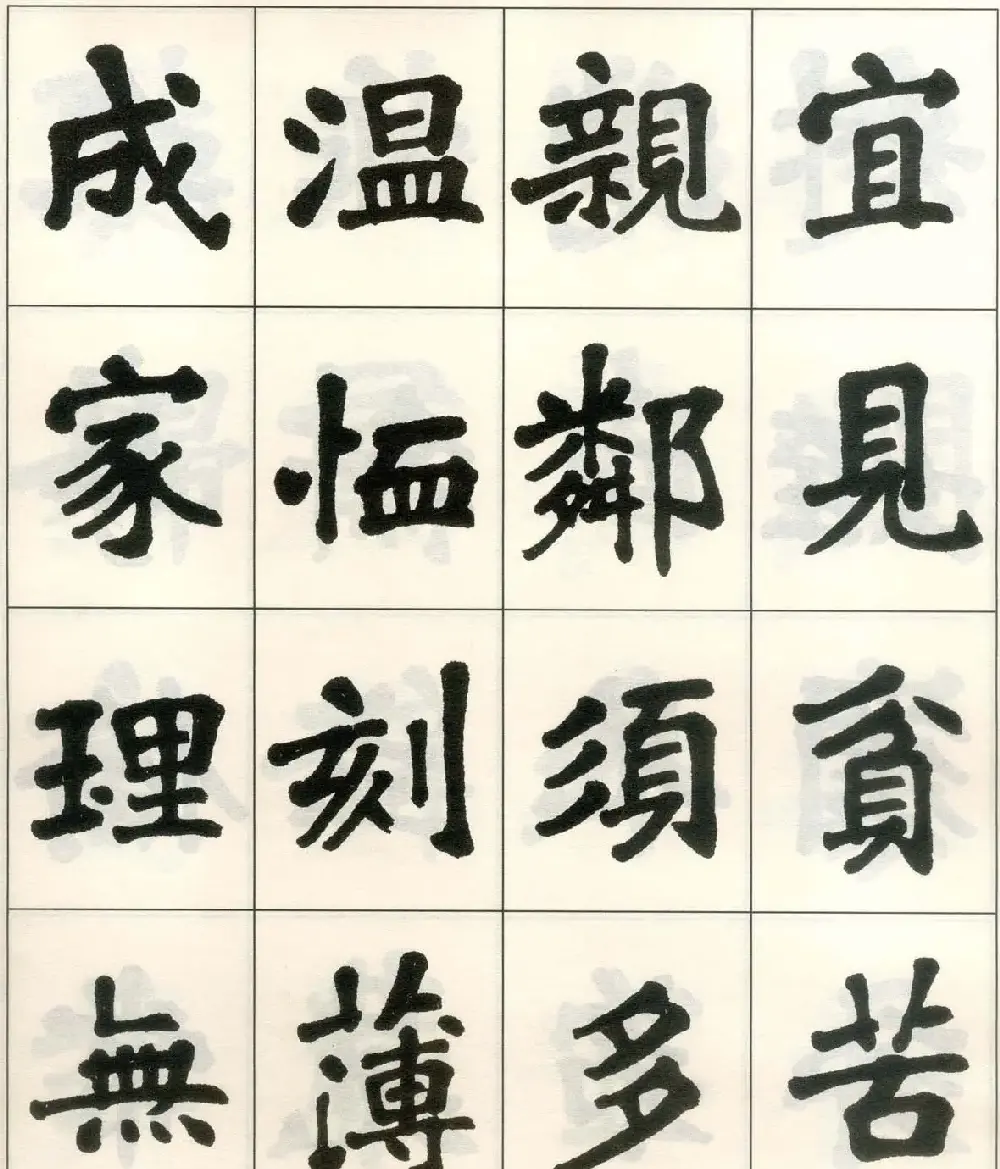 宜見貧苦
親鄰須多
温恤刻薄
成家理無